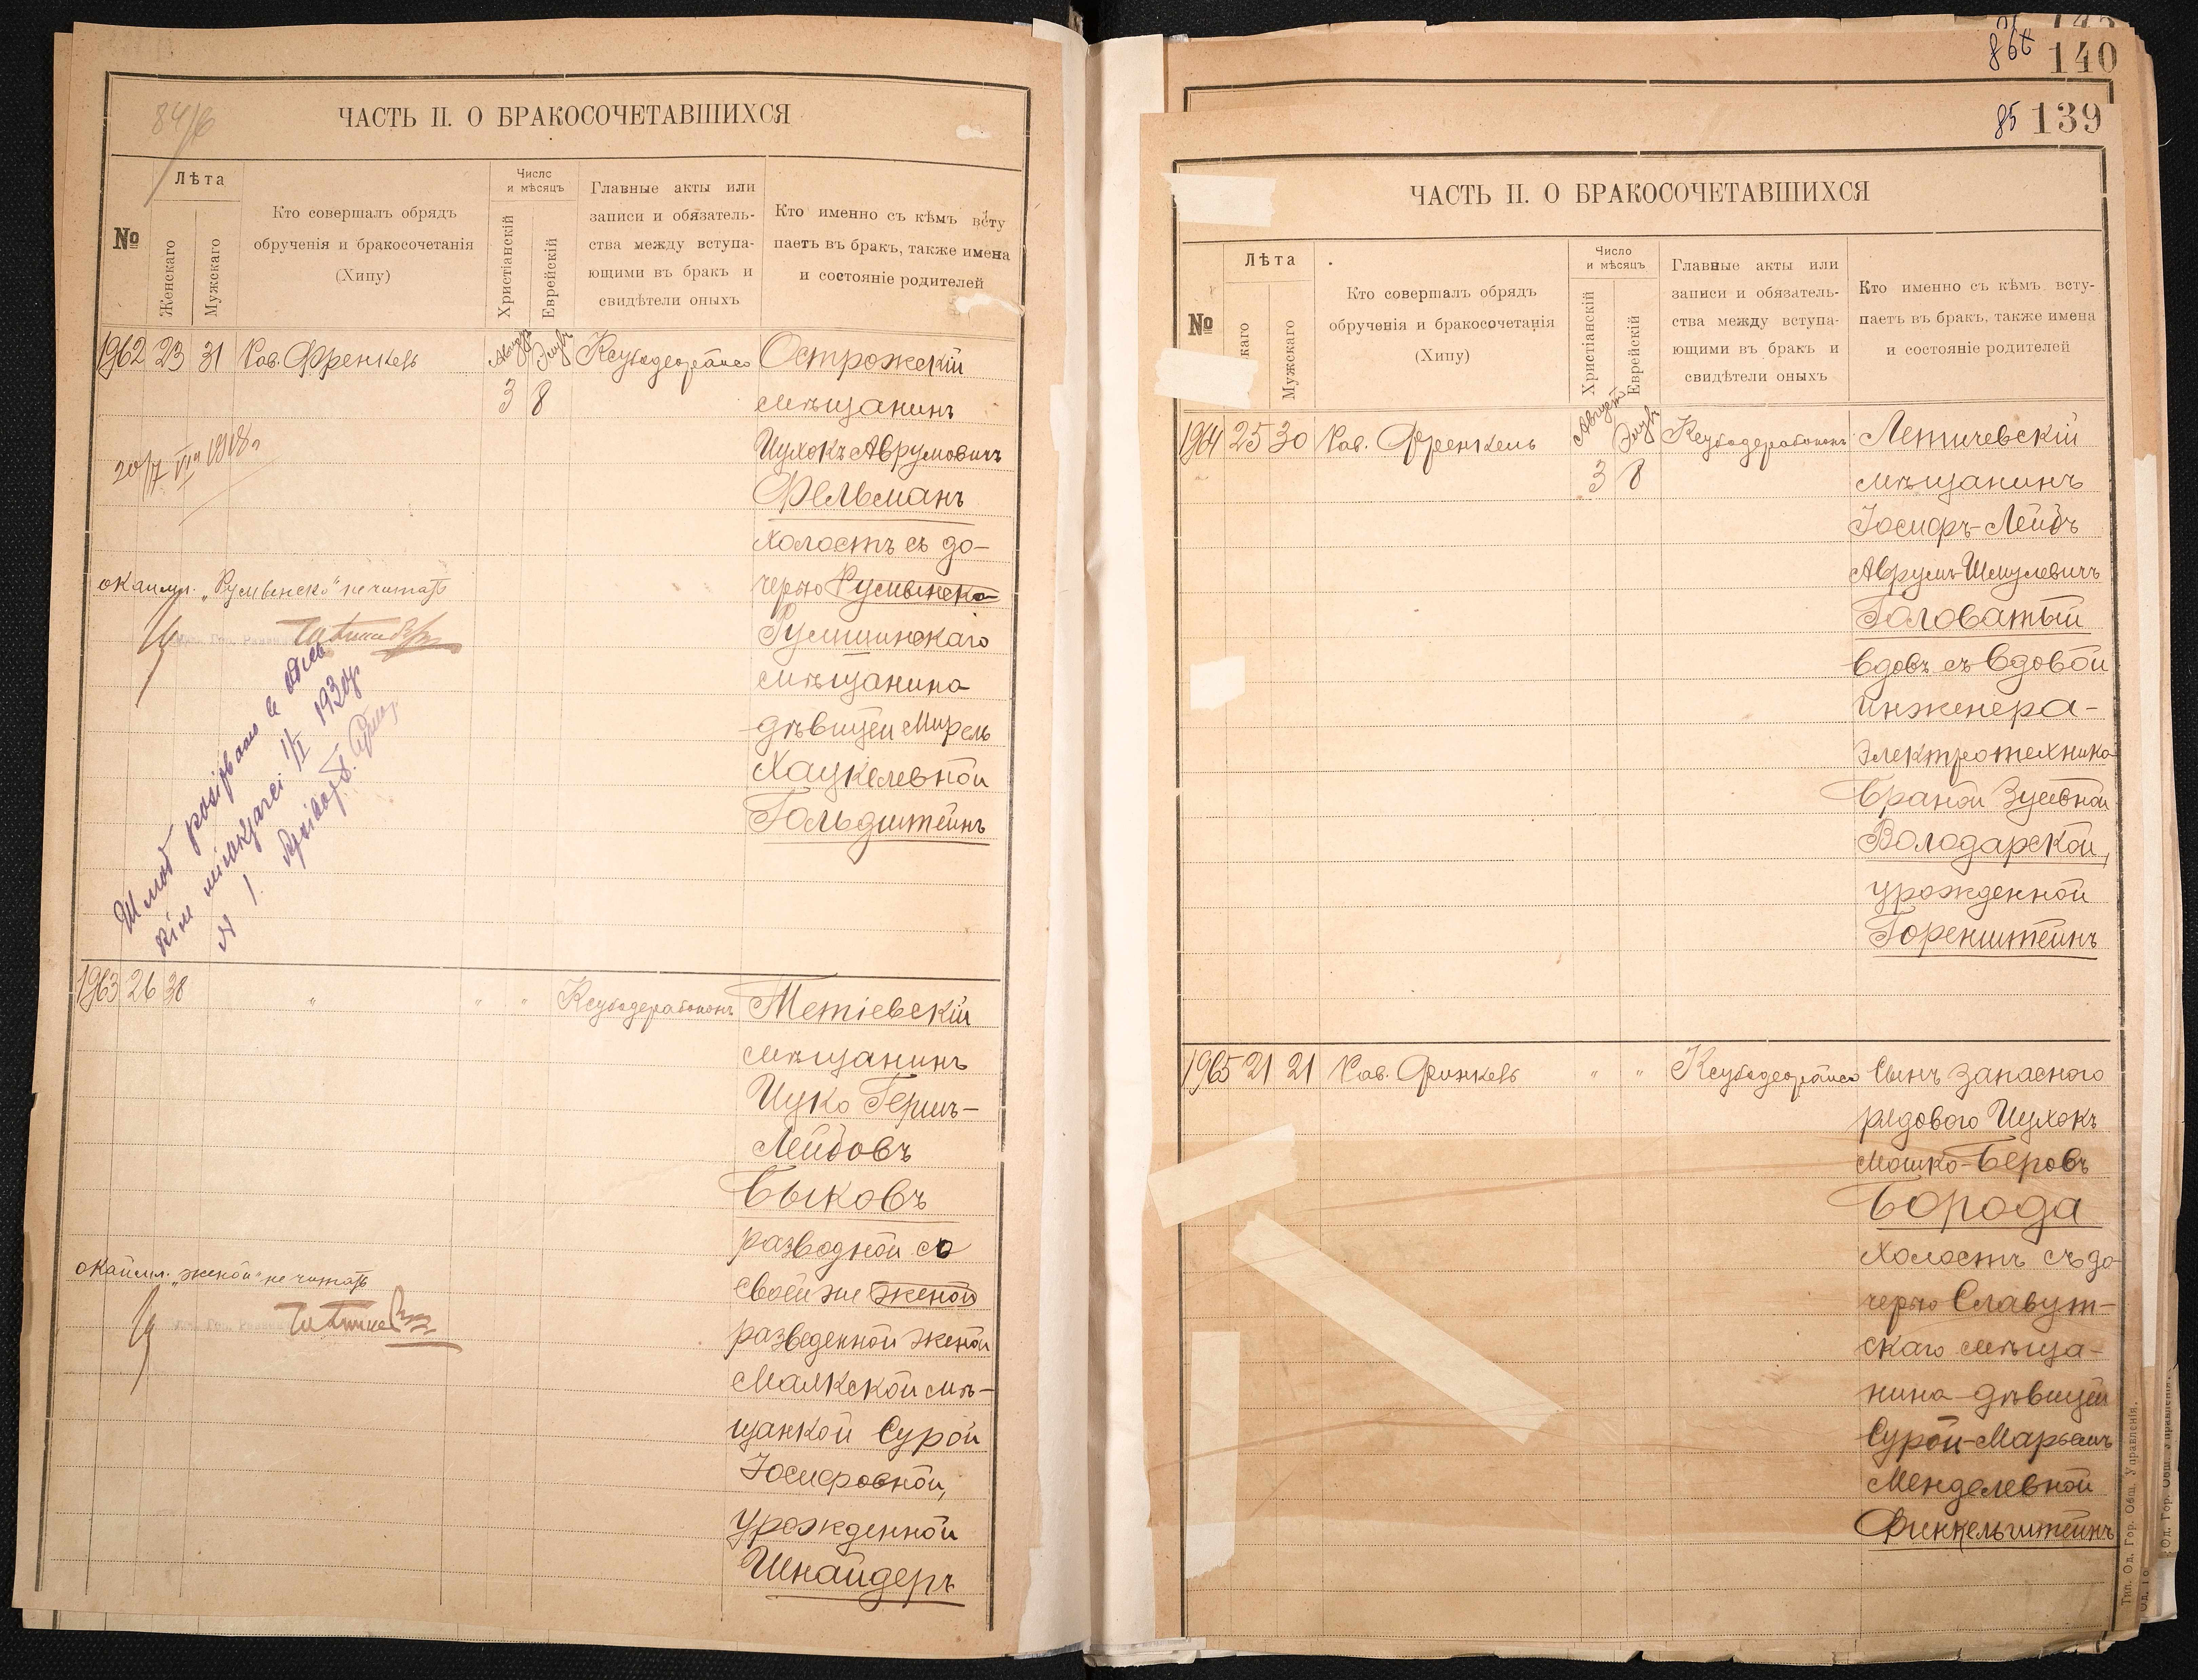 84/б
ЧАСТЬ II. О БРАКОСОЧЕТАВШИХСЯ
№
Лѣта
Женскаго
Мужскаго
Кто совершалъ обрядъ
обрученія и бракосочетанія
(Хипу)
Число
и мѣсяцъ
Христіанскій
Еврейскій
Главные акты или
записи и обязатель-
ства между вступа-
ющими въ бракъ и
свидѣтели оныхъ
Кто именно съ кѣмъ всту
паетъ въ бракъ, также имена
и состояніе родителей
1962 23 31 Рав. Френкель
Августъ Элулъ
3 8
Острожскій
мѣщанинъ
Ицхокъ Аврумовичъ
Фельманъ
холостъ съ до-
черью Румынска
Румшинскаго
мѣщанина
дѣвицей Мирель
Хацкелевной
Гольдштейнъ
окаймл. „Румынска" не читать
1930р.
1963 26 38 " " " Ксубодерабононъ
Тетіевскій
мѣщанинъ
Ицко Гершъ-
Лейбовъ
Быковъ
разводной со
своей же женой
разведенной женой
мѣ-
щанкой Сурой
Іосифовной,
урожденной
Шнайдеръ
окаймл. „женой" не читать
140
85 139
ЧАСТЬ II. О БРАКОСОЧЕТАВШИХСЯ
№
Лѣта
каго
Мужскаго
Кто совершалъ обрядъ
обрученія и бракосочетанія
(Хипу)
Число
и мѣсяцъ
Христіанскій
Еврейскій
Главные акты или
записи и обязатель-
ства между вступа-
ющими въ бракъ и
свидѣтели оныхъ
Кто именно съ кѣмъ всту-
паетъ въ бракъ, также имена
и состояніе родителей
1964 25 30 Рав. Френкель
Августъ Элулъ
3 8
Ксубодерабононъ
Летичевскій
мѣщанинъ
Іосифъ-Лейбъ
Аврумъ-Шмулевичъ
Головатый
вдовъ съ вдовой
инженера-
электротехника
Браной Зусевной
Володарской,
урожденной
Горенштейнъ
1965 21 21 Рав. Финкель " "
Сынъ запасного
рядового Ицхокъ
Мошко-Беровъ
Борода
холостъ съ до-
черью Славут-
скаго мѣща-
нина дѣвицей
Сурой-Марьемъ
Менделевной
Финкельштейнъ
Тип. Од. Гор. Общ. Управленія.